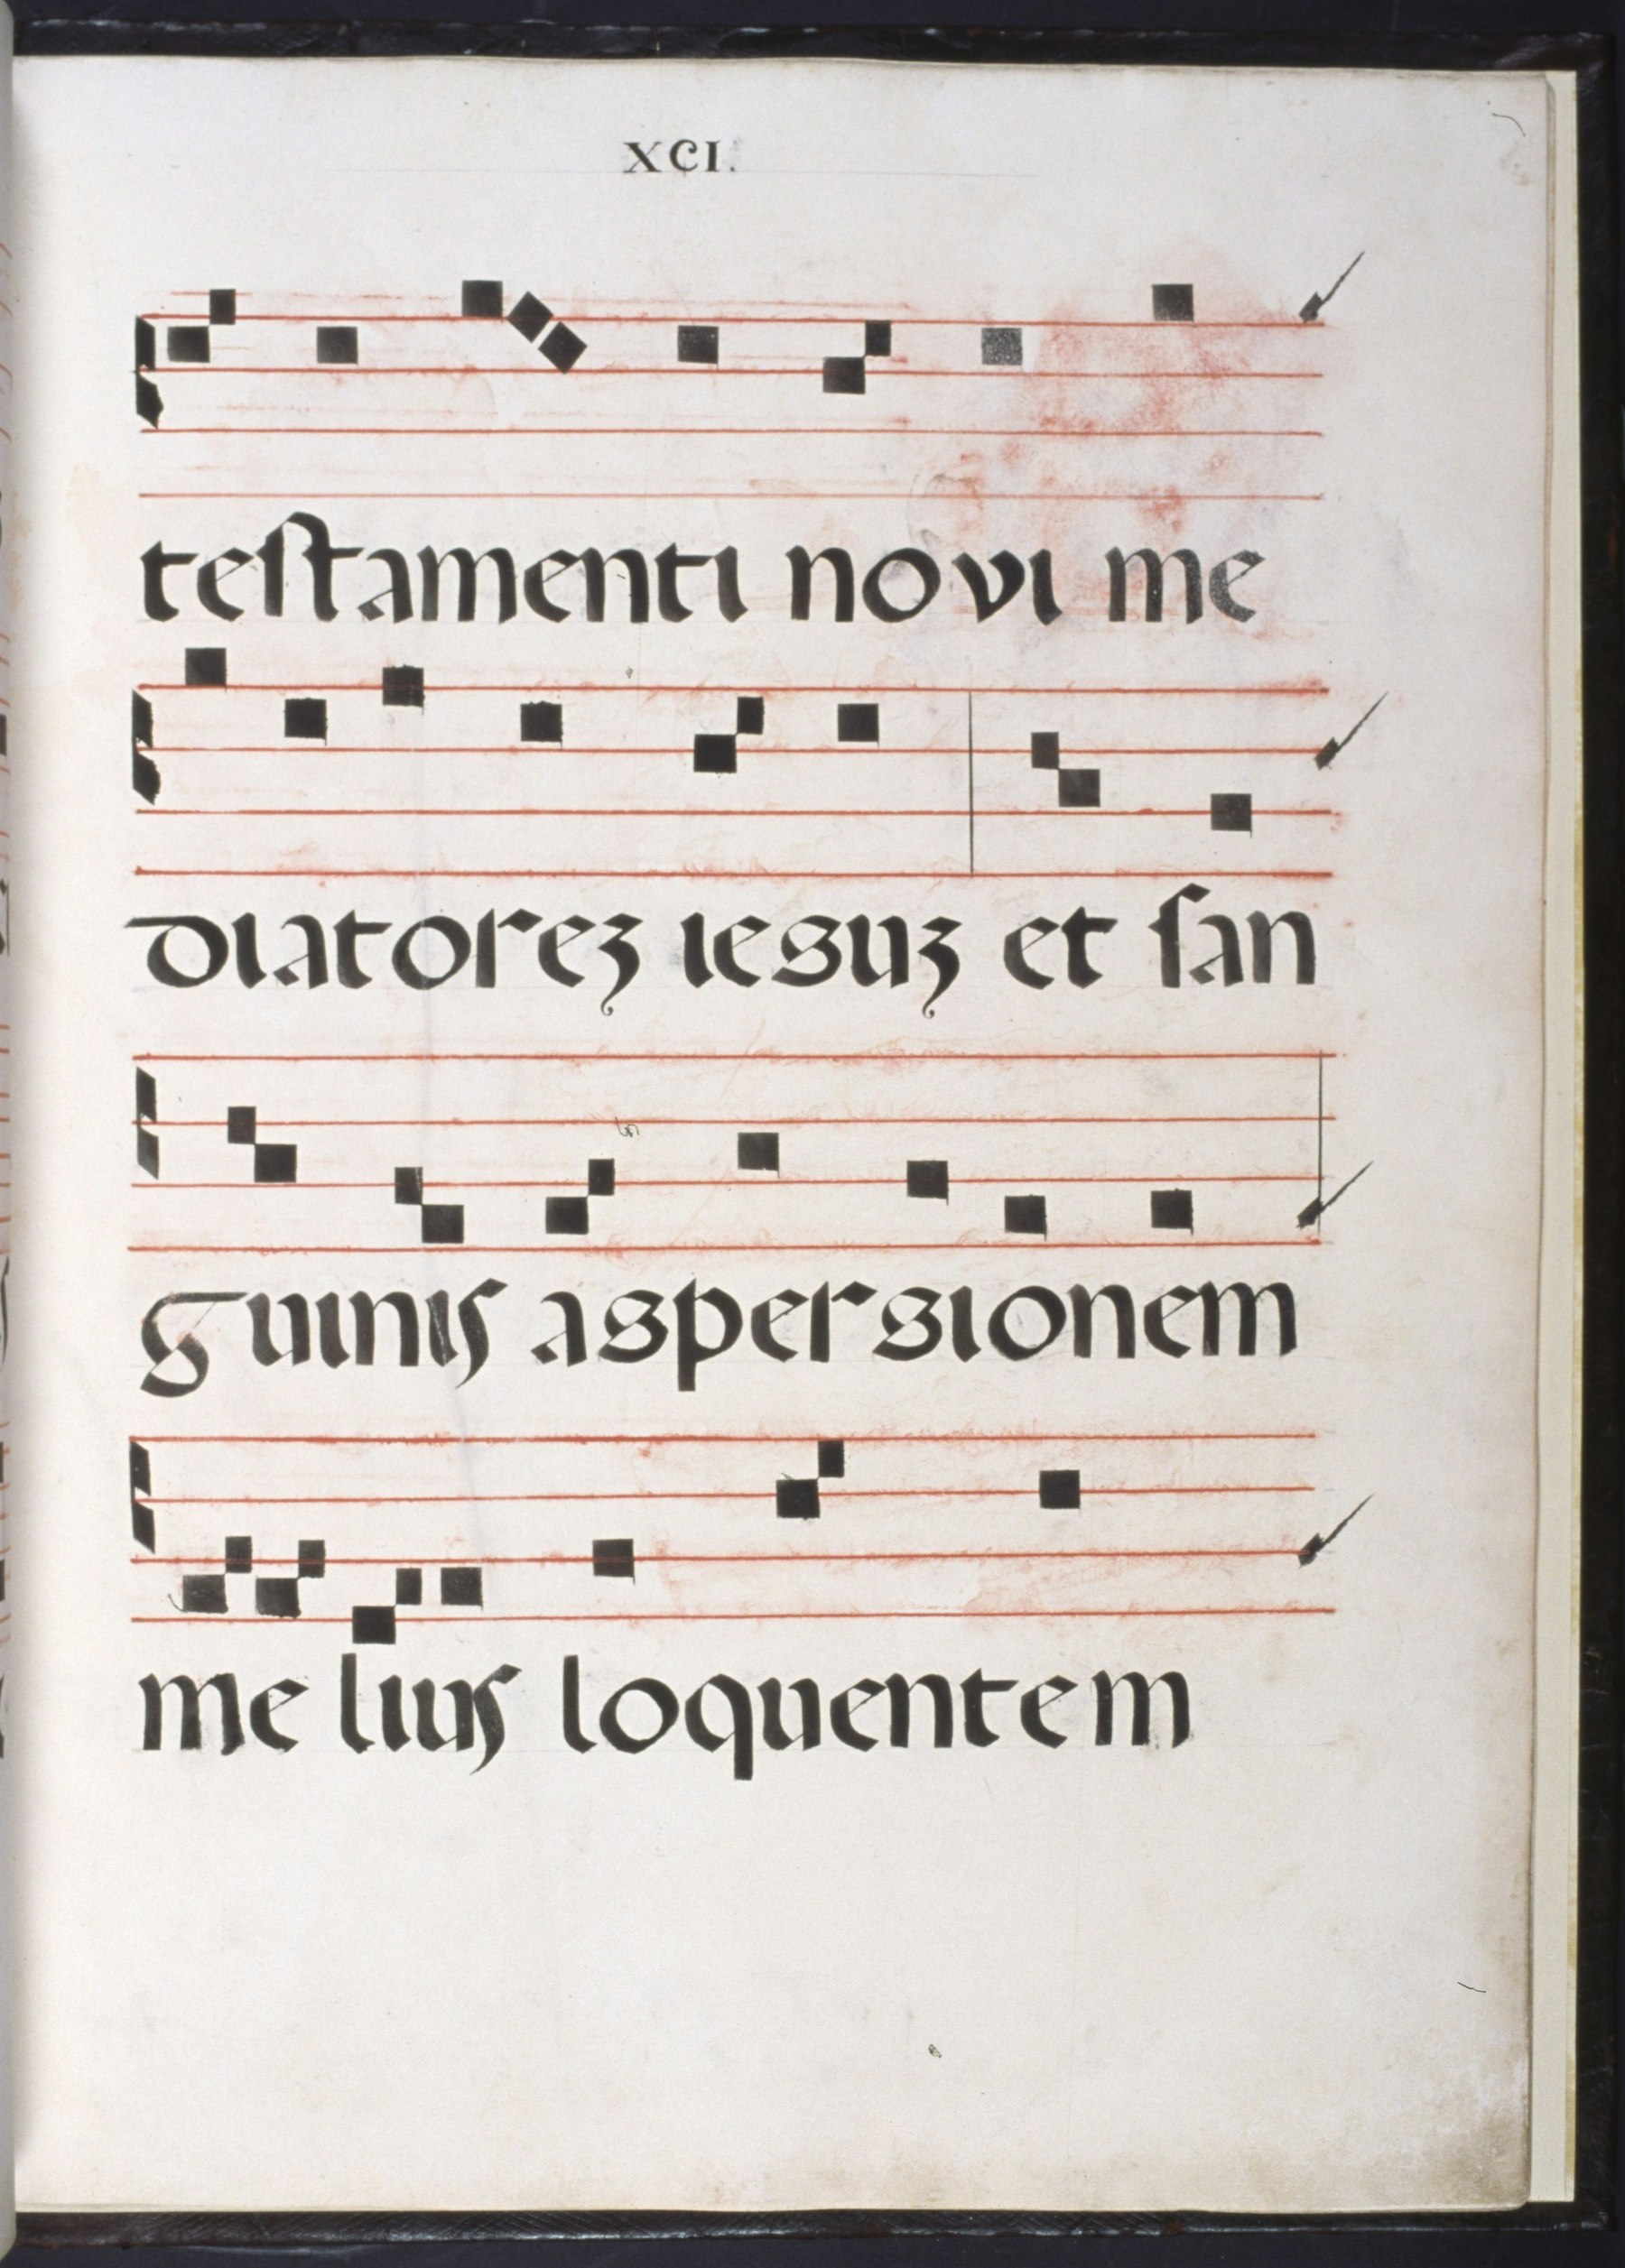 XCI.
teſtamenti novi me
diatoreʒ iesuʒ et ſan
guinis aspersionem
me lius loquentem